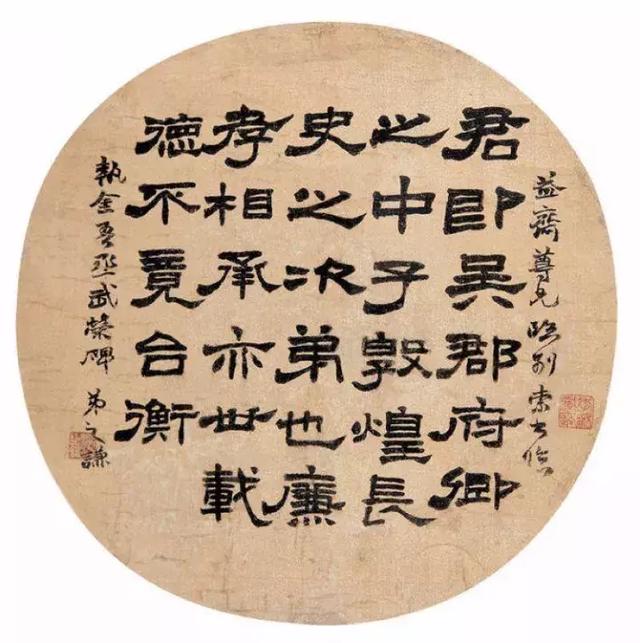 益齋尊兄臨別索書臨
君即吳郡府卿
之中子敦煌長
史之次弟也廉
孝相承亦世載
德不竟台衡
執金吾丞武榮碑 弟之謙